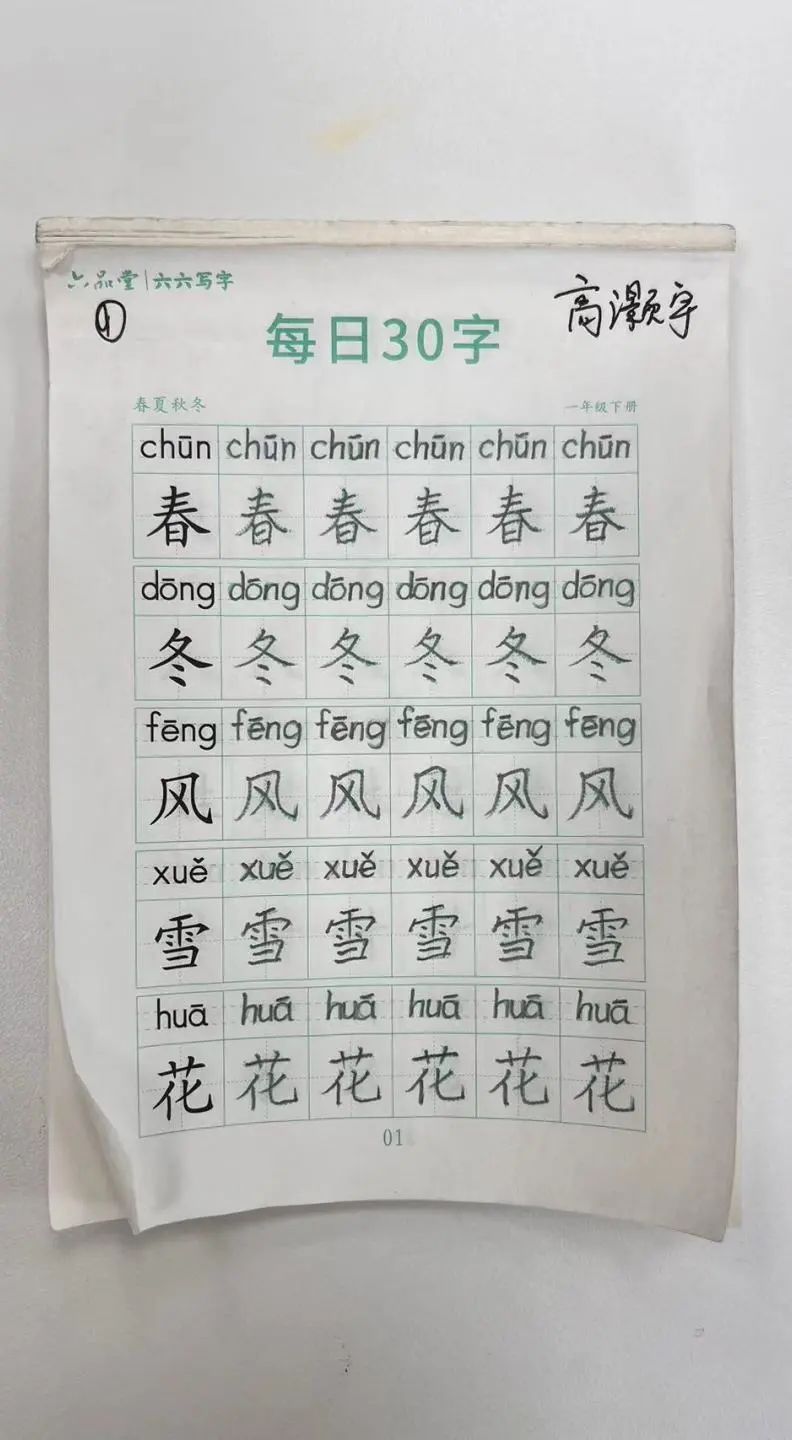 六品堂|六六写字
①
高灏宇
每日30字
春夏秋冬 一年级下册
chūn chūn chūn chūn chūn chūn
春 春 春 春 春 春
dōng dōng dōng dōng dōng dōng
冬 冬 冬 冬 冬 冬
fēng fēng fēng fēng fēng fēng
风 风 风 风 风 风
xuě xuě xuě xuě xuě xuě
雪 雪 雪 雪 雪 雪
huā huā huā huā huā huā
花 花 花 花 花 花
01